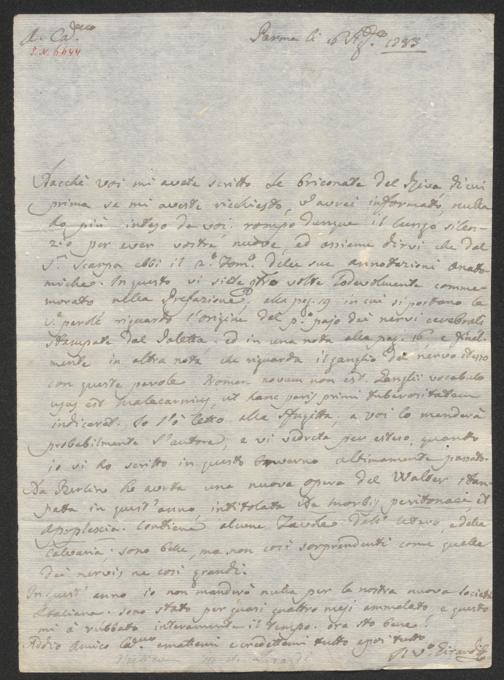 A. C.
S.N. 6644
Parma li 16 1783
Dacchè voi mi avete scritto le briconate del di cui
prima se mi aveste richiesto, v'avrei informato, nulla
ho più inteso da voi rompo dunque il lungo silen-
zio per aver vostre nuove, ed assieme dirvi che dal
Sr Scarpa ebbi il 2.° Tom.° delle sue annotazioni anato-
miche. In questo vi siete volte lodevolmente comme-
morato nella Prefazione, alla pag. 19 in cui si portano le
parole riguardo l'origine del p.° pajo dei nervi cerebrali
stampate dal ed in una nota alla pag. 16, e final-
mente in altra nota che riguarda il ganglio del nervo
con queste parole Nomen novum non est. Ganglii vocabulo
usus est Malacarnius, ut hanc paris primi tuberositatem
indicaret. Io l'ò letto alla sfugitta, a voi lo manderà
probabilmente l'autore, e vi vedrete per esteso, quando
io vi ho scritto in questo inverno ultimamente passato.
Da Berlino ho avuta una nuova opera del Walter stam-
pata in quest'anno, intitolata De morbis peritonaei et
apoplexia. Contiene alcune Tavole dell' utero, e della
Calvaria. sono belle, ma non così sorprendenti come quelle
dei nervi, ne così grandi.
In quest' anno io non manderò nulla per la nostra nuova società
Italiana. sono stato per quasi quattro mesi ammalato e questo
mi à rubbato interamente il tempo. ora sto bene.
Addio Amico ematemi e credettemi tutto
V.° Girardi